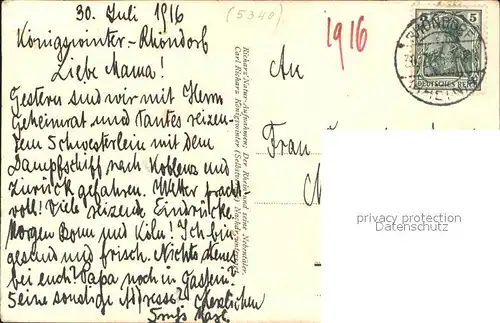 30. Juli 1916
(5340)
1916
Königswinter-Rhöndorf
Liebe Mama!
Gestern sind wir mit Herrn
Geheimrat und Tantes reizen-
dem Schwesterlein mit dem
Dampfschiff nach Koblenz und
zurück gefahren. Wetter pracht-
voll! Viele reizende Eindrücke.
Morgen Bonn und Köln! Ich bin
gesund und frisch. Nichts neues
bei euch? Papa noch in Gastein.
Seine sonstige Adresse? Herzlichen
Gruß
Richarz' Natur-Aufnahmen: Der Rhein und seine Nebentäler.
Carl Richarz, Königswinter (Selbstverlag)
An
Frau
5
DEUTSCHES REICH
RHÖNDORF
(RHEIN)
privacy protection
by Veikkos.com